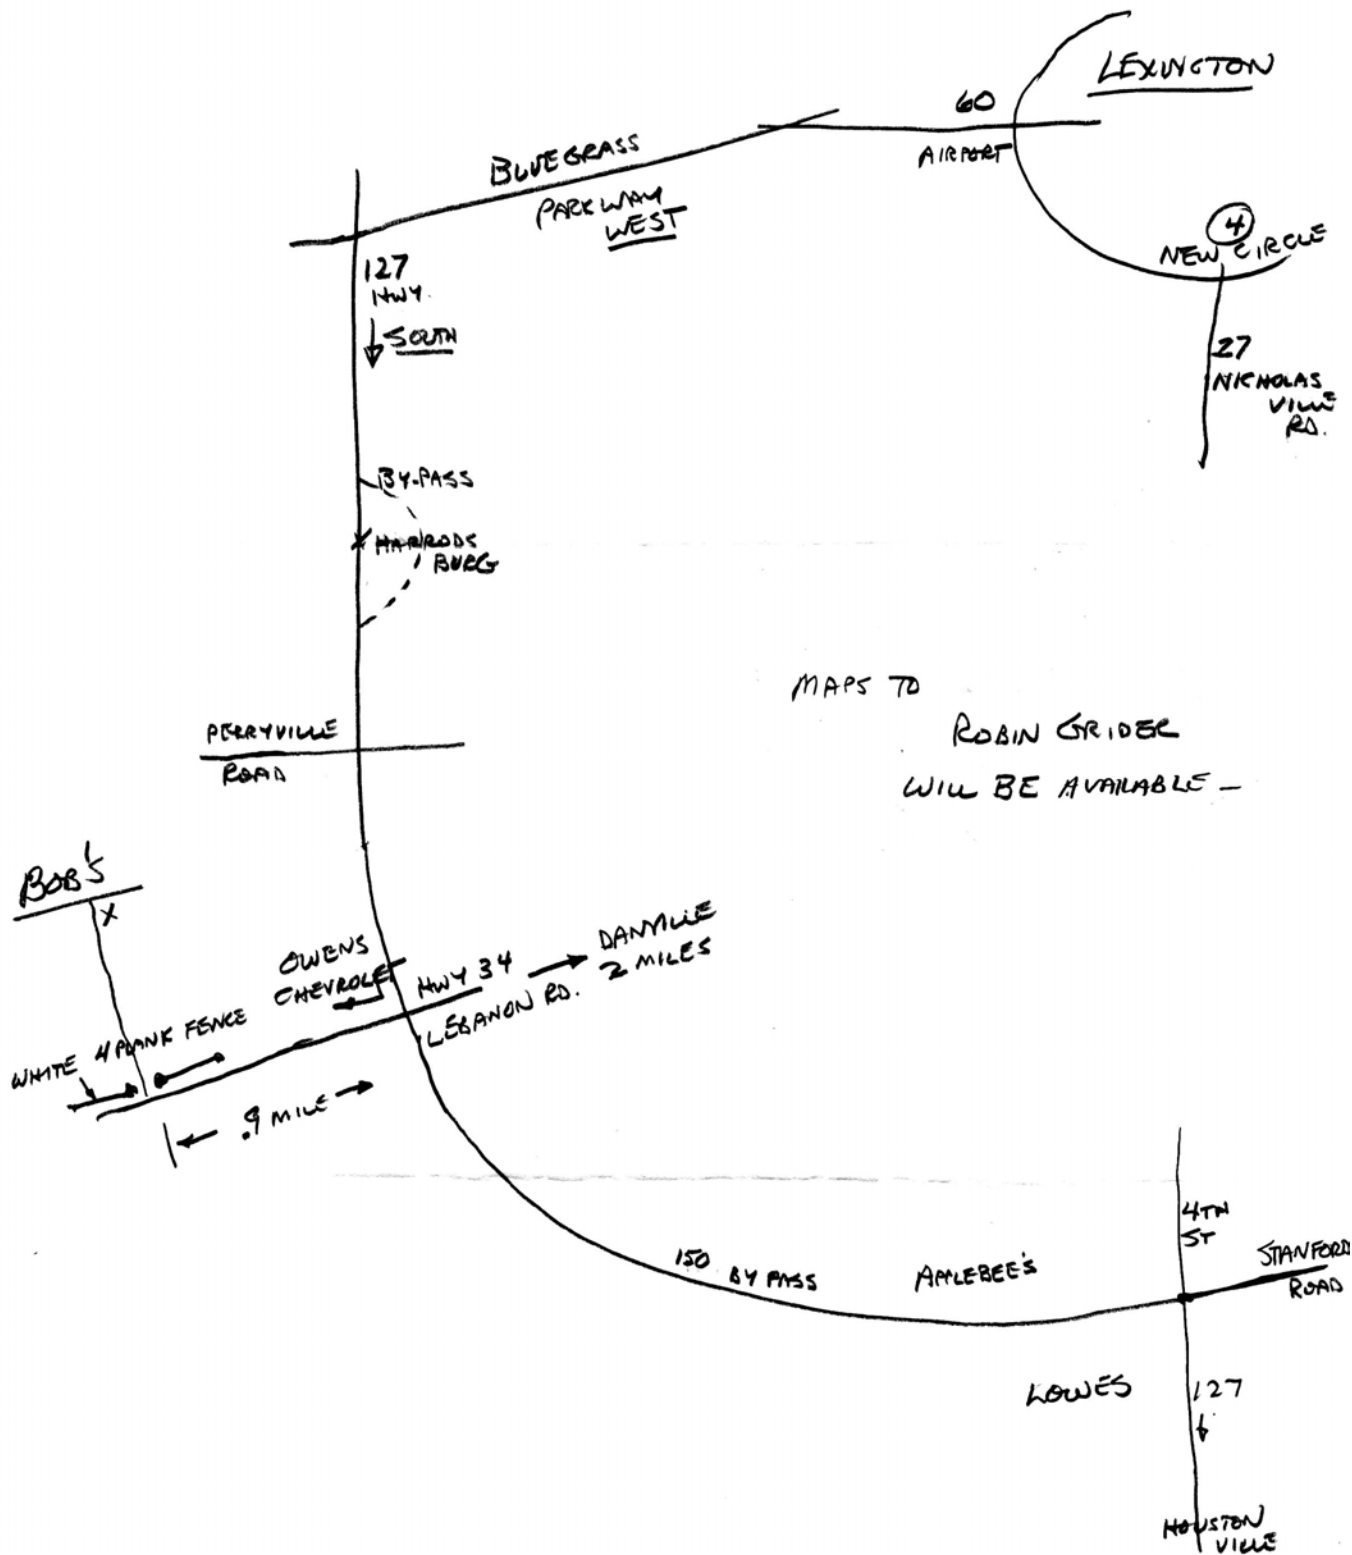 LEXINGTON
60
AIRPORT
BLUEGRASS
PARKWAY
WEST
4
NEW CIRCLE
127
HWY.
SOUTH
27
NICHOLAS
VILLE
RD.
BY-PASS
X HARRODS
BURG
MAPS TO
ROBIN GRIDER
WILL BE AVAILABLE -
PERRYVILLE
ROAD
BOB'S
X
OWENS
CHEVROLET
HWY 34
LEBANON RD.
DANVILLE
2 MILES
WHITE 4 PLANK FENCE
.9 MILE
150 BY PASS
APPLEBEE'S
4TH
ST
STANFORD
ROAD
LOWES
127
HOUSTON
VILLE